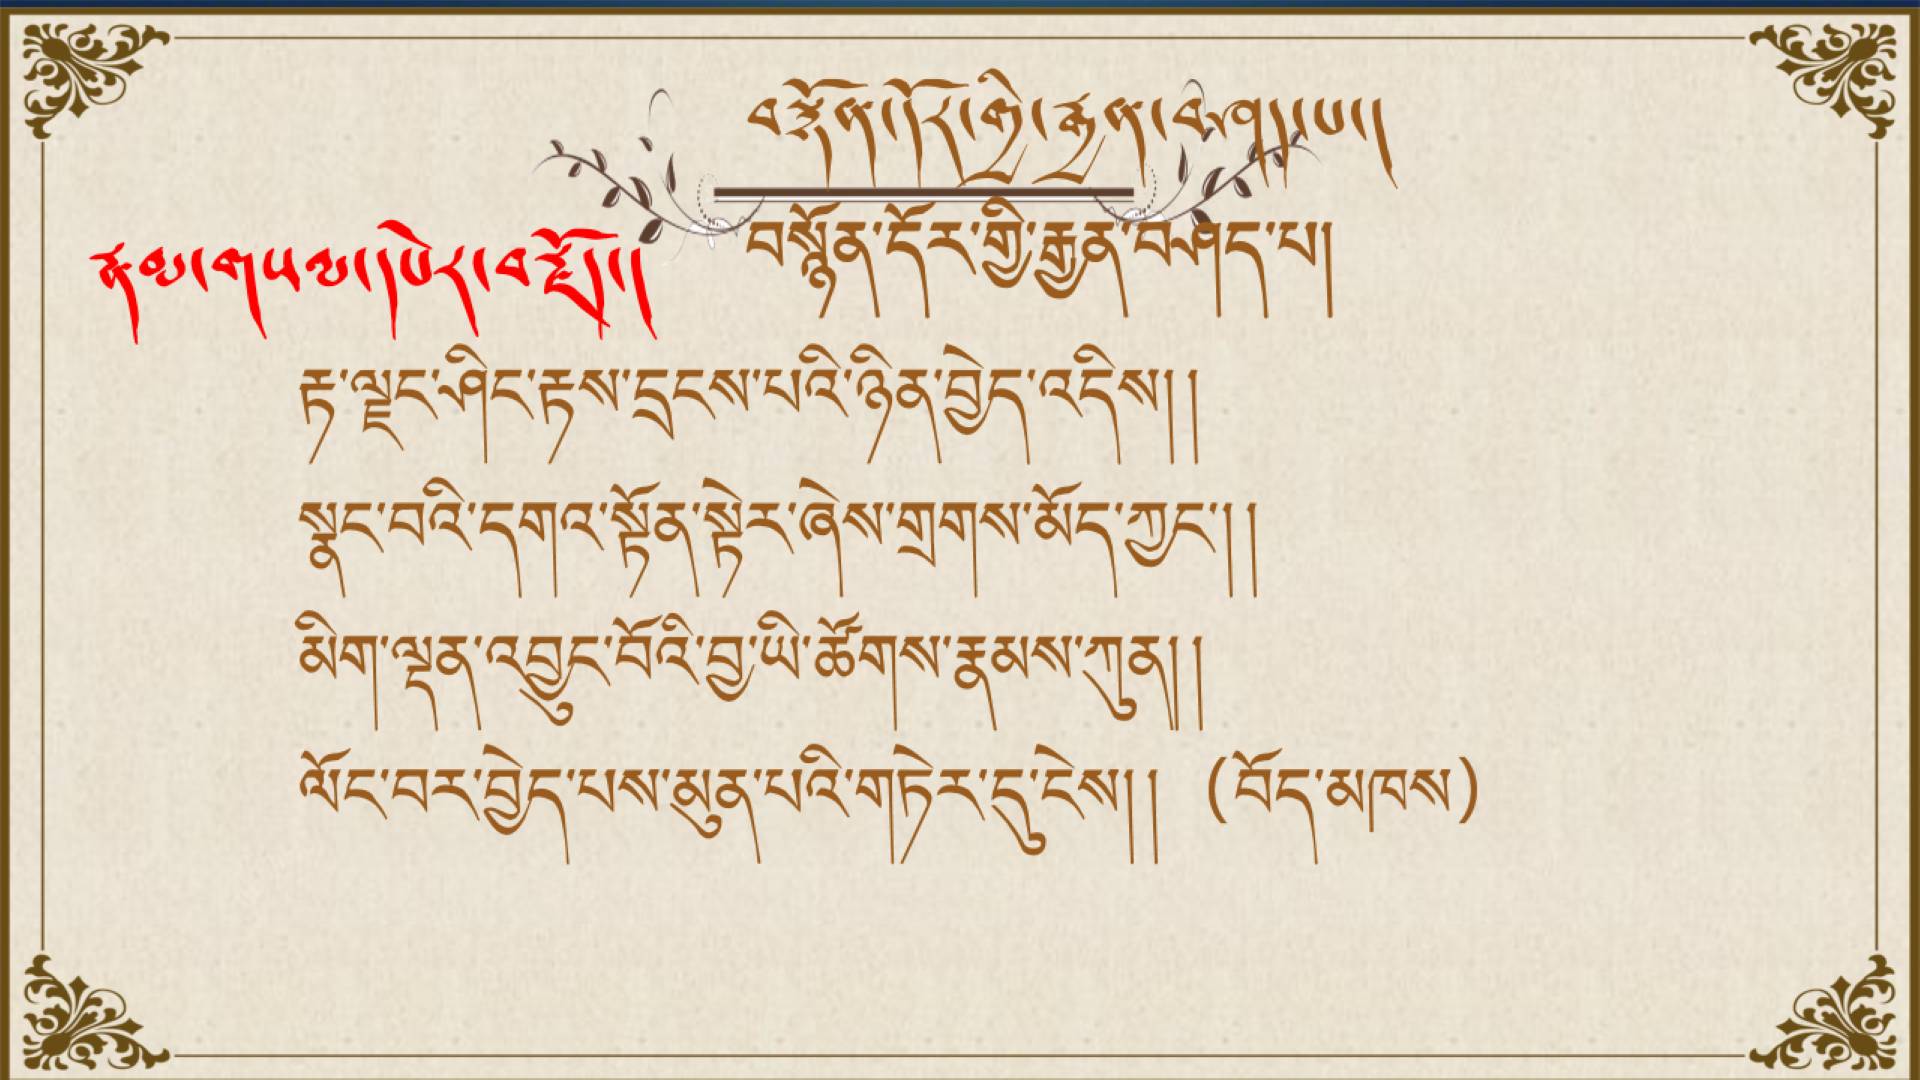 བསྙོན་དོར་གྱི་རྒྱན་བཤད་པ།
བསྙོན་དོར་གྱི་རྒྱན་བཤད་པ།
རྟ་ལྗང་ཤིང་རྟས་དྲངས་པའི་ཉིན་བྱེད་འདིས།།
སྣང་བའི་དགའ་སྟོན་སྟེར་ཞེས་གྲགས་མོད་ཀྱང་།།
མིག་ལྡན་འབྱུང་པོའི་བྱ་ཡི་ཚོགས་རྣམས་ཀུན།།
ལོང་བར་བྱེད་པས་མུན་པའི་གཏེར་དུ་ངེས།། (བོད་མཁས)